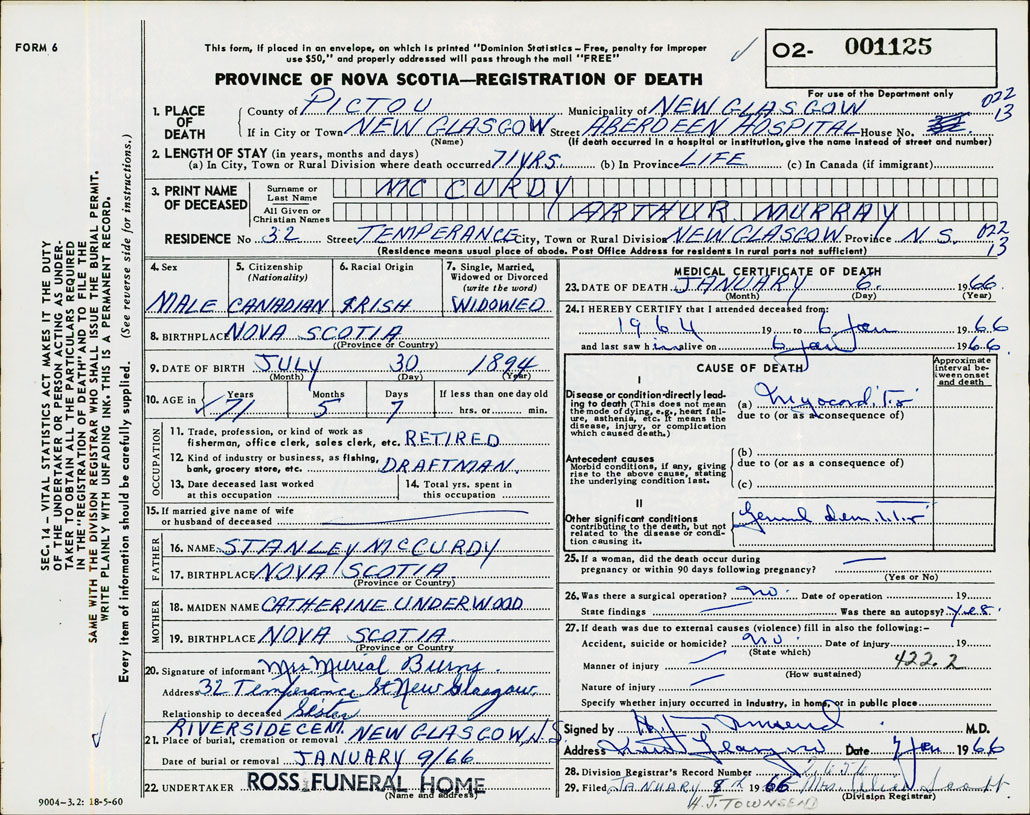 FORM 6
This form, if placed in an envelope, on which is printed "Dominion Statistics – Free, penalty for improper
use $50," and properly addressed will pass through the mail "FREE"
O2- 001125
PROVINCE OF NOVA SCOTIA—REGISTRATION OF DEATH
For use of the Department only
022
13
1. PLACE OF DEATH
County of PICTOU Municipality of NEW GLASGOW
If in City or Town NEW GLASGOW Street ABERDEEN HOSPITAL House No.
(Name) (If death occurred in a hospital or institution, give the name instead of street and number)
2. LENGTH OF STAY (in years, months and days)
(a) In City, Town or Rural Division where death occurred 71 YRS. (b) In Province LIFE (c) In Canada (if immigrant)
3. PRINT NAME OF DECEASED
Surname or Last Name MC CURDY
All Given or Christian Names ARTHUR MURRAY
RESIDENCE No 32 Street TEMPERANCE City, Town or Rural Division NEW GLASGOW Province N.S. 022
13
(Residence means usual place of abode. Post Office Address for residents in rural parts not sufficient)
4. Sex MALE
5. Citizenship (Nationality) CANADIAN
6. Racial Origin IRISH
7. Single, Married, Widowed or Divorced (write the word) WIDOWED
8. BIRTHPLACE NOVA SCOTIA
(Province or Country)
9. DATE OF BIRTH JULY 30 1894
(Month) (Day) (Year)
10. AGE in Years 71 Months 5 Days 7 If less than one day old
hrs. or min.
OCCUPATION
11. Trade, profession, or kind of work as
fisherman, office clerk, sales clerk, etc. RETIRED
12. Kind of industry or business, as fishing,
bank, grocery store, etc. DRAFTMAN.
13. Date deceased last worked
at this occupation
14. Total yrs. spent in
this occupation
15. If married give name of wife
or husband of deceased
FATHER
16. NAME STANLEY MCCURDY
17. BIRTHPLACE NOVA SCOTIA
(Province or Country)
MOTHER
18. MAIDEN NAME CATHERINE UNDERWOOD
19. BIRTHPLACE NOVA SCOTIA.
(Province or Country)
20. Signature of informant Mrs Murial
Address 32 Temperance St New Glasgow.
Relationship to deceased Sister
RIVERSIDE CEM.
21. Place of burial, cremation or removal NEW GLASGOW, N.S
Date of burial or removal JANUARY 9/66
22. UNDERTAKER ROSS FUNERAL HOME
(Name and address)
9004–3.2: 18-5-60
MEDICAL CERTIFICATE OF DEATH
23. DATE OF DEATH JANUARY 6. 1966
(Month) (Day) (Year)
24. I HEREBY CERTIFY that I attended deceased from:
1964 19 to 6 Jan 1966
and last saw him alive on 6 Jan 1966
CAUSE OF DEATH
Approximate interval between onset and death
I
Disease or condition directly leading to death (This does not mean the mode of dying, e.g., heart failure, asthenia, etc. It means the disease, injury, or complication which caused death.)
(a) Myocarditis
due to (or as a consequence of)
Antecedent causes
Morbid conditions, if any, giving rise to the above cause, stating the underlying condition last.
(b)
due to (or as a consequence of)
(c)
II
Other significant conditions
contributing to the death, but not related to the disease or condition causing it.
25. If a woman, did the death occur during
pregnancy or within 90 days following pregnancy?
(Yes or No)
26. Was there a surgical operation? no. Date of operation 19
State findings Was there an autopsy? yes.
27. If death was due to external causes (violence) fill in also the following:–
Accident, suicide or homicide? no. Date of injury 19
(State which)
Manner of injury 422.2
(How sustained)
Nature of injury
Specify whether injury occurred in industry, in home, or in public place
Signed by H. J. Townsend M.D.
Address New Glasgow Date 7 Jan 1966
28. Division Registrar's Record Number
29. Filed JANUARY 8th 1966 Mrs.
(Division Registrar)
H.J. TOWNSEND
SEC. 14 – VITAL STATISTICS ACT MAKES IT THE DUTY
OF THE UNDERTAKER OR PERSON ACTING AS UNDER-
TAKER TO OBTAIN ALL THE PARTICULARS REQUIRED
IN THE "REGISTRATION OF DEATH" AND TO FILE THE
SAME WITH THE DIVISION REGISTRAR WHO SHALL ISSUE THE BURIAL PERMIT.
WRITE PLAINLY WITH UNFADING INK. THIS IS A PERMANENT RECORD.
Every item of information should be carefully supplied. (See reverse side for instructions.)